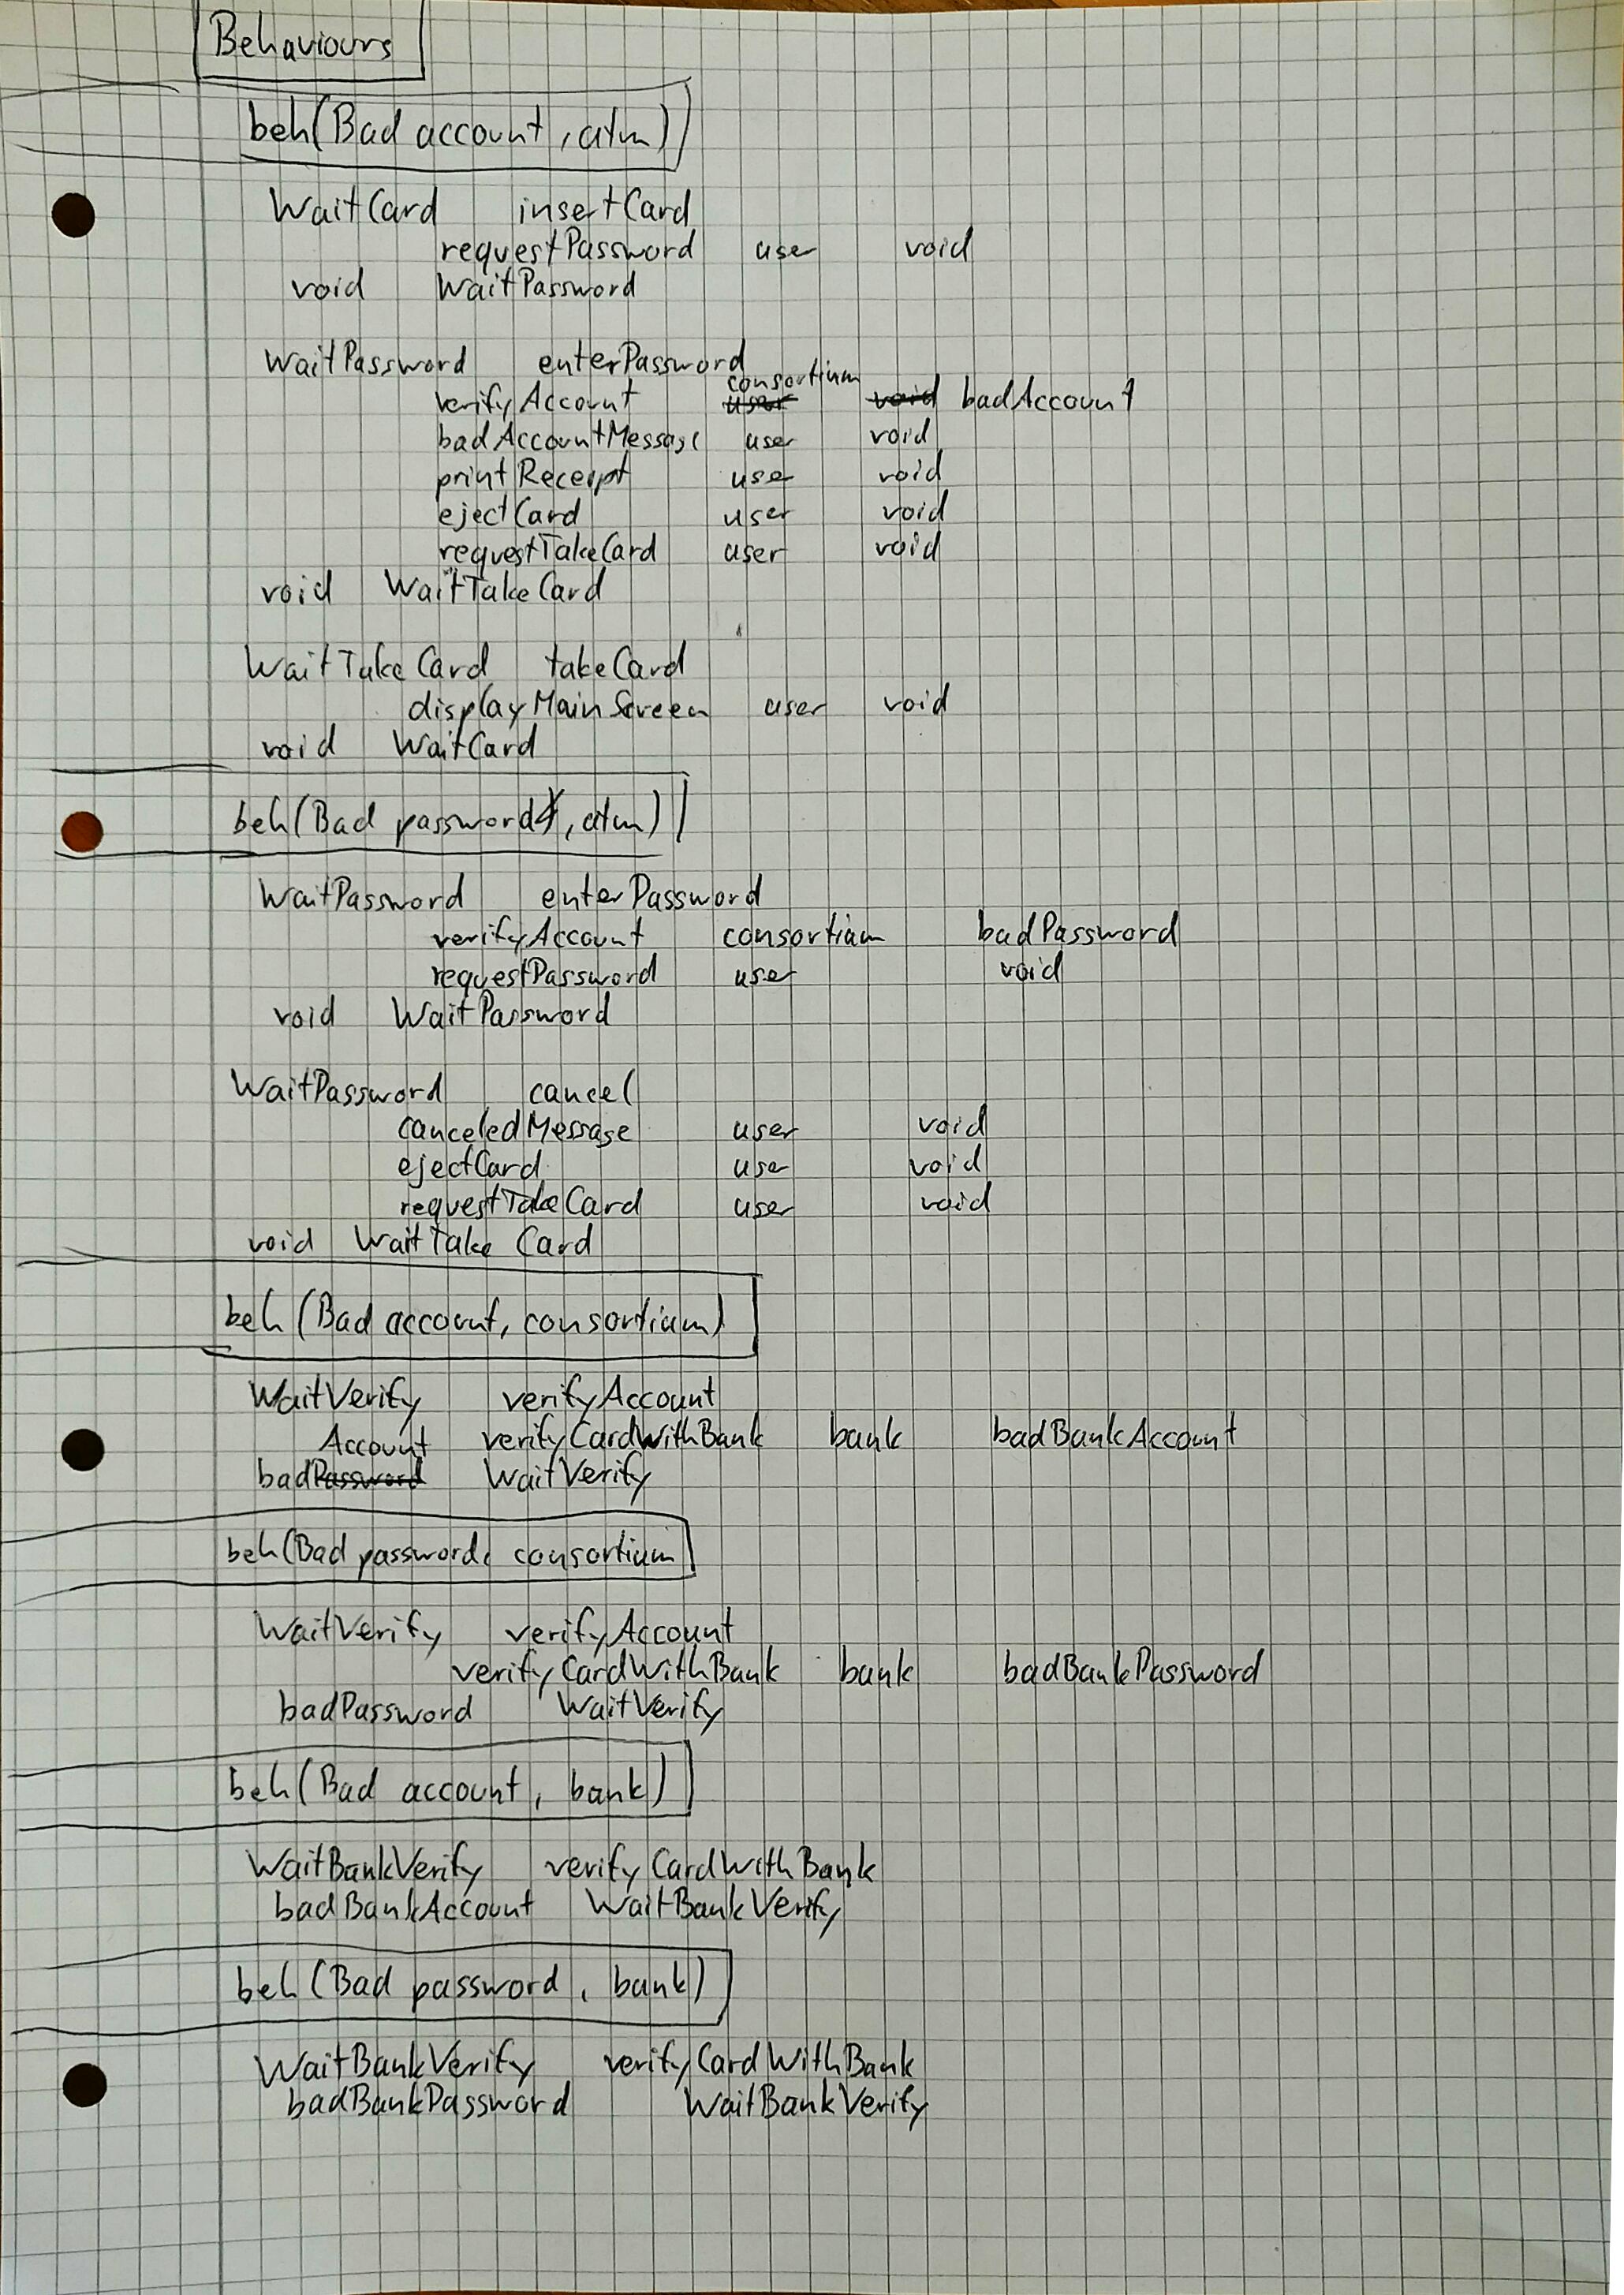 Behaviours
beh(Bad account, atm)
WaitCard insertCard
requestPassword user void
void WaitPassword
WaitPassword enterPassword
consortium
verifyAccount user void badAccount
badAccountMessage user void
printReceipt user void
ejectCard user void
requestTakeCard user void
void WaitTakeCard
WaitTakeCard takeCard
displayMainScreen user void
void WaitCard
beh(Bad password, atm)
WaitPassword enterPassword
verifyAccount consortium badPassword
requestPassword user void
void WaitPassword
WaitPassword cancel
canceledMessage user void
ejectCard user void
requestTakeCard user void
void WaitTakeCard
beh(Bad account, consortium)
WaitVerify verifyAccount
Account verifyCardWithBank bank badBankAccount
badPassword WaitVerify
beh(Bad password, consortium
WaitVerify verifyAccount
verifyCardWithBank bank badBankPassword
badPassword WaitVerify
beh(Bad account, bank)
WaitBankVerify verifyCardWithBank
badBankAccount WaitBankVerify
beh(Bad password, bank)
WaitBankVerify verifyCardWithBank
badBankPassword WaitBankVerify